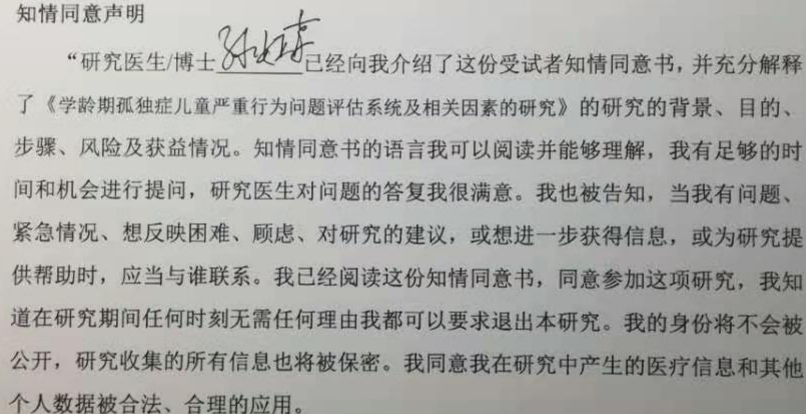 知情同意声明
“研究医生/博士 已经向我介绍了这份受试者知情同意书，并充分解释
了《学龄期孤独症儿童严重行为问题评估系统及相关因素的研究》的研究的背景、目的、
步骤、风险及获益情况。知情同意书的语言我可以阅读并能够理解，我有足够的时
间和机会进行提问，研究医生对问题的答复我很满意。我也被告知，当我有问题、
紧急情况、想反映困难、顾虑、对研究的建议，或想进一步获得信息，或为研究提
供帮助时，应当与谁联系。我已经阅读这份知情同意书，同意参加这项研究，我知
道在研究期间任何时刻无需任何理由我都可以要求退出本研究。我的身份将不会被
公开，研究收集的所有信息也将被保密。我同意我在研究中产生的医疗信息和其他
个人数据被合法、合理的应用。